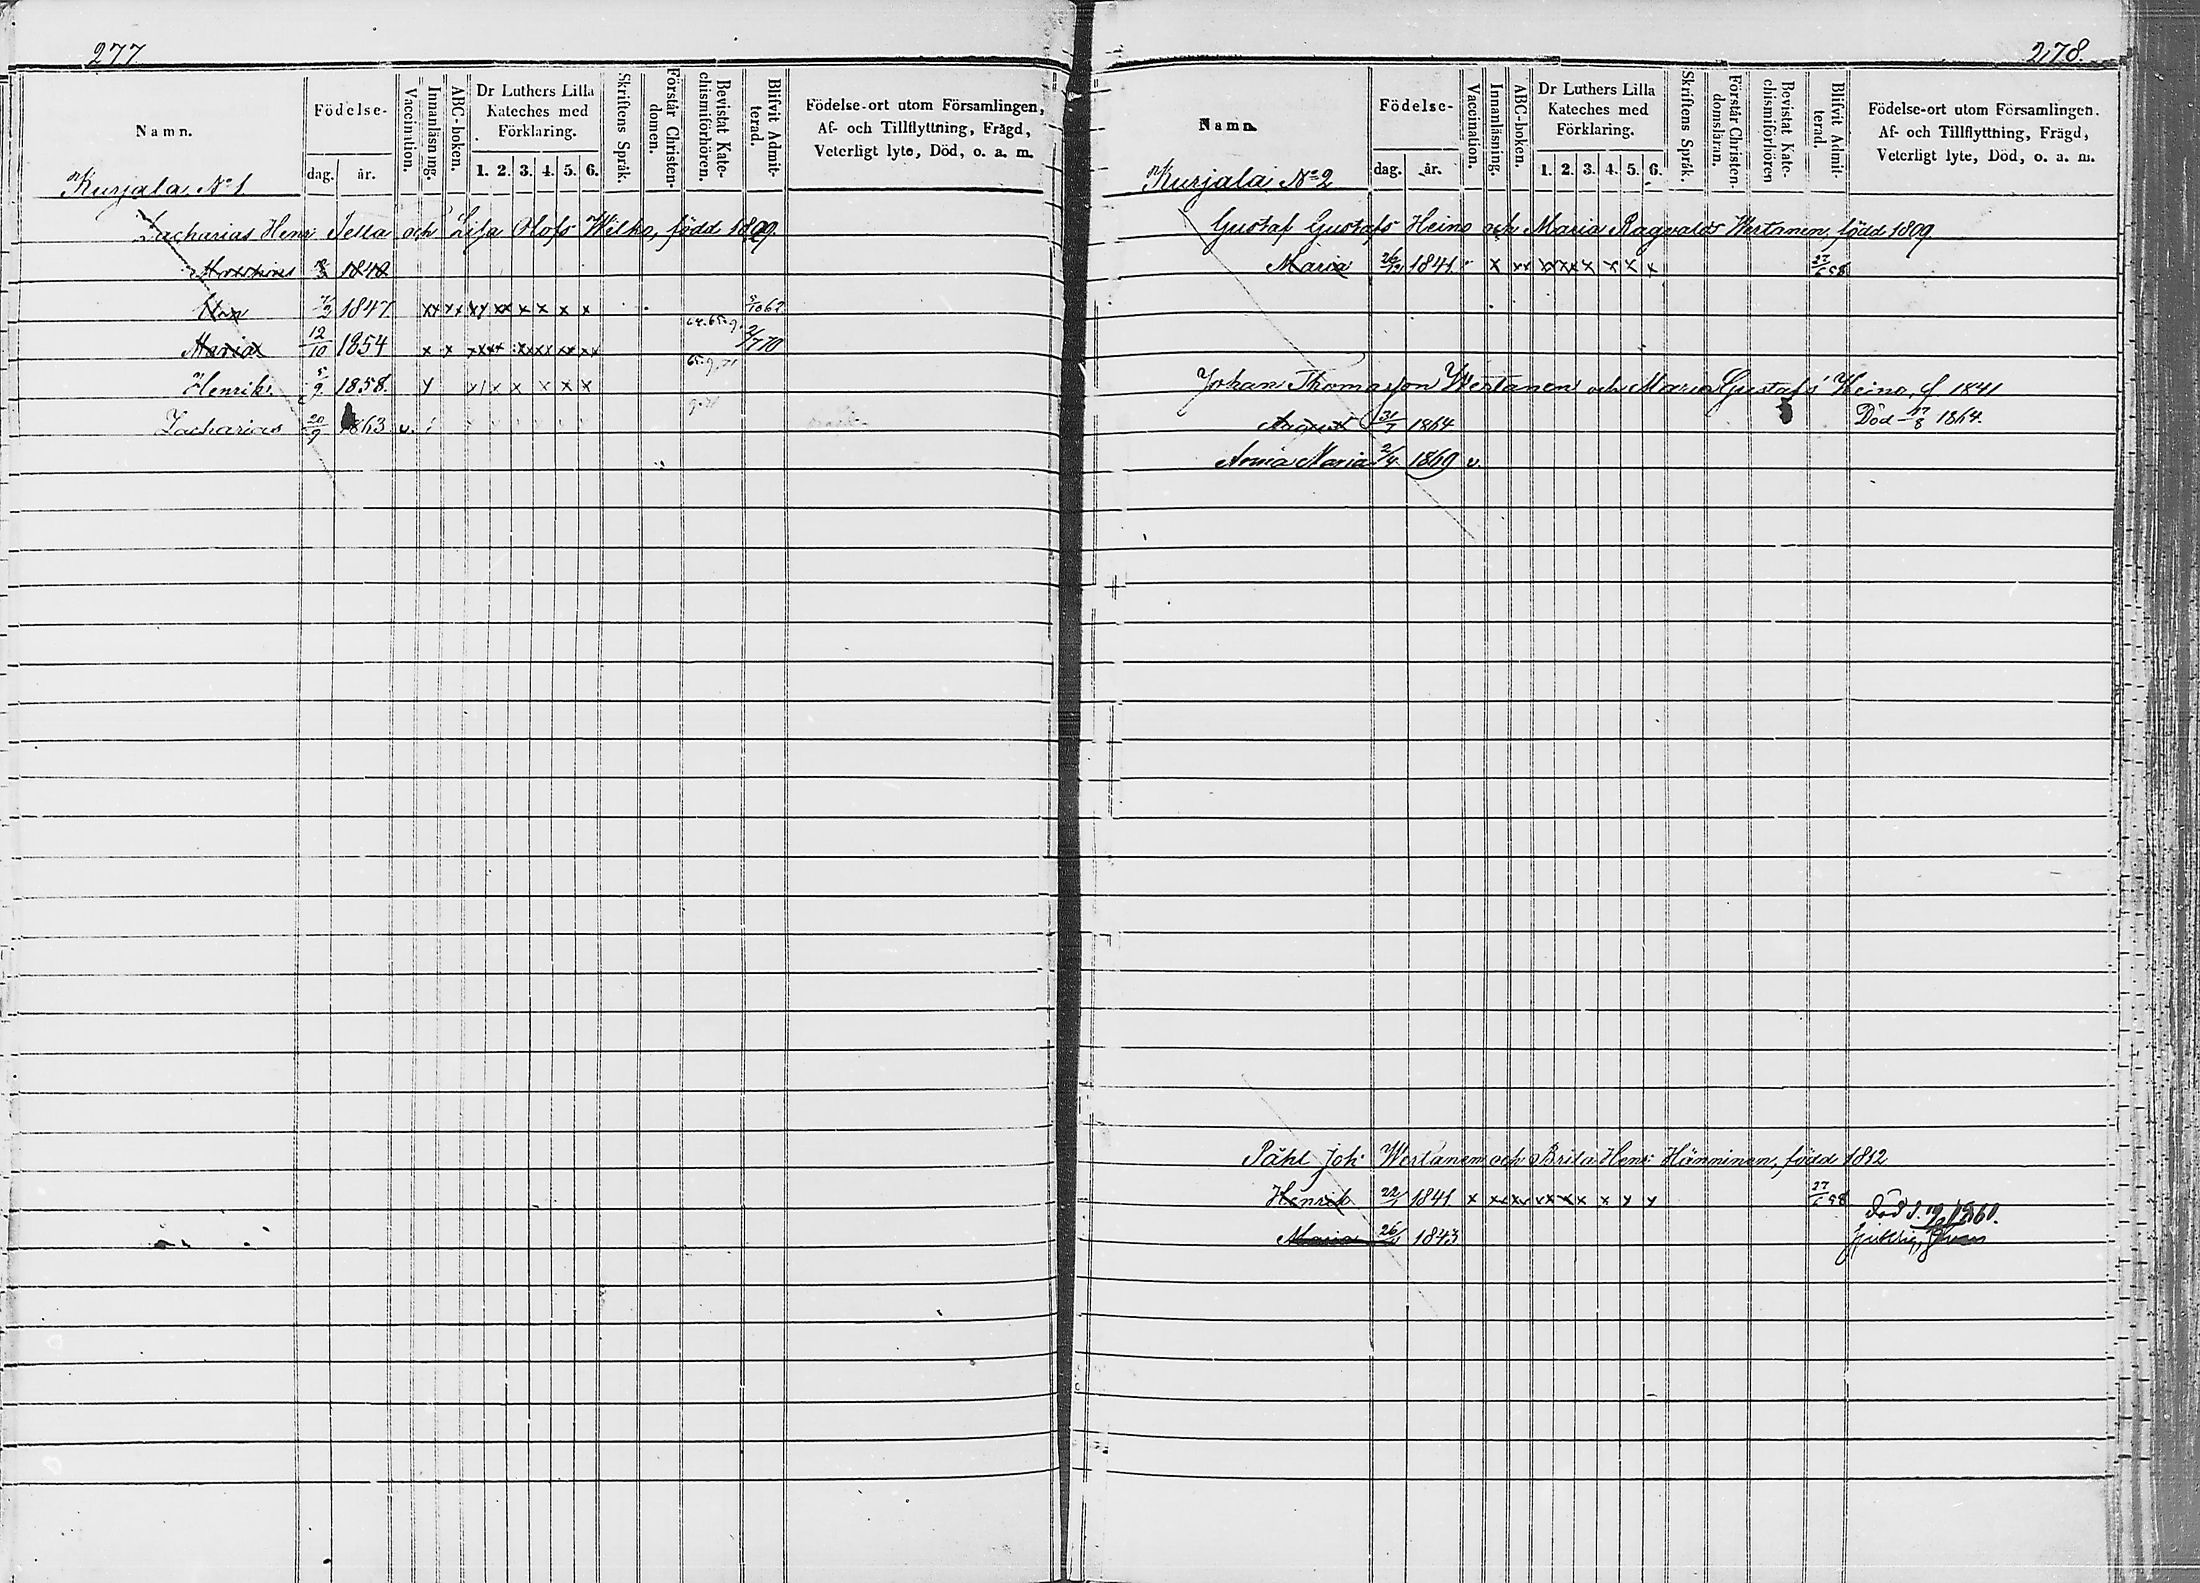 277
Namn.
Födelse-
dag.
år.
Vaccination.
Innanläsning.
ABC-boken.
Dr Luthers Lilla
Kateches med
Förklaring.
1. 2. 3. 4. 5. 6.
Skriftens Språk.
Förstår Christen-
domen.
Bevistat Kate-
chismiförhören.
Blifvit Admit-
terad.
Födelse-ort utom Församlingen,
Af- och Tillflyttning, Frägd,
Veterligt lyte, Död, o. a. m.
Kurjala No 1
Zacharias Henr: och Lisa Olofs Wilko, född
1840
1847 x x x x x x x x
Maria 12/10 1854 x x x x x x x x 2/7 70
Henrik 5/9 1858. x x x x x x x
Zacharias 20/9 1863 v.
278.
Namn.
Födelse-
dag.
år.
Vaccination.
Innanläsning.
ABC-boken.
Dr Luthers Lilla
Kateches med
Förklaring.
1. 2. 3. 4. 5. 6.
Skriftens Språk.
Förstår Christen-
domsläran.
Bevistat Kate-
chismiförhören
Blifvit Admit-
terad.
Födelse-ort utom Församlingen.
Af- och Tillflyttning, Frägd,
Veterligt lyte, Död, o. a. m.
Kurjala No 2
Gustaf Gustafs Heino och Maria Ragvalds Wertanen, född 1809
Maria 1841 x xx xx xx x x x x 27/6 58
Johan Thomasson Wertanen och Maria Gustafs Heino, f. 1841
August 31/7 1864 Död 17/8 1864.
Anna Maria 2/4 1869 v.
Påhl Joh: Wertanen och Brita Henr: Hänninen, född 1812
Henrik 22/1 1841. x xx xx xx xx x x x x 27/6 58
Maria 1843